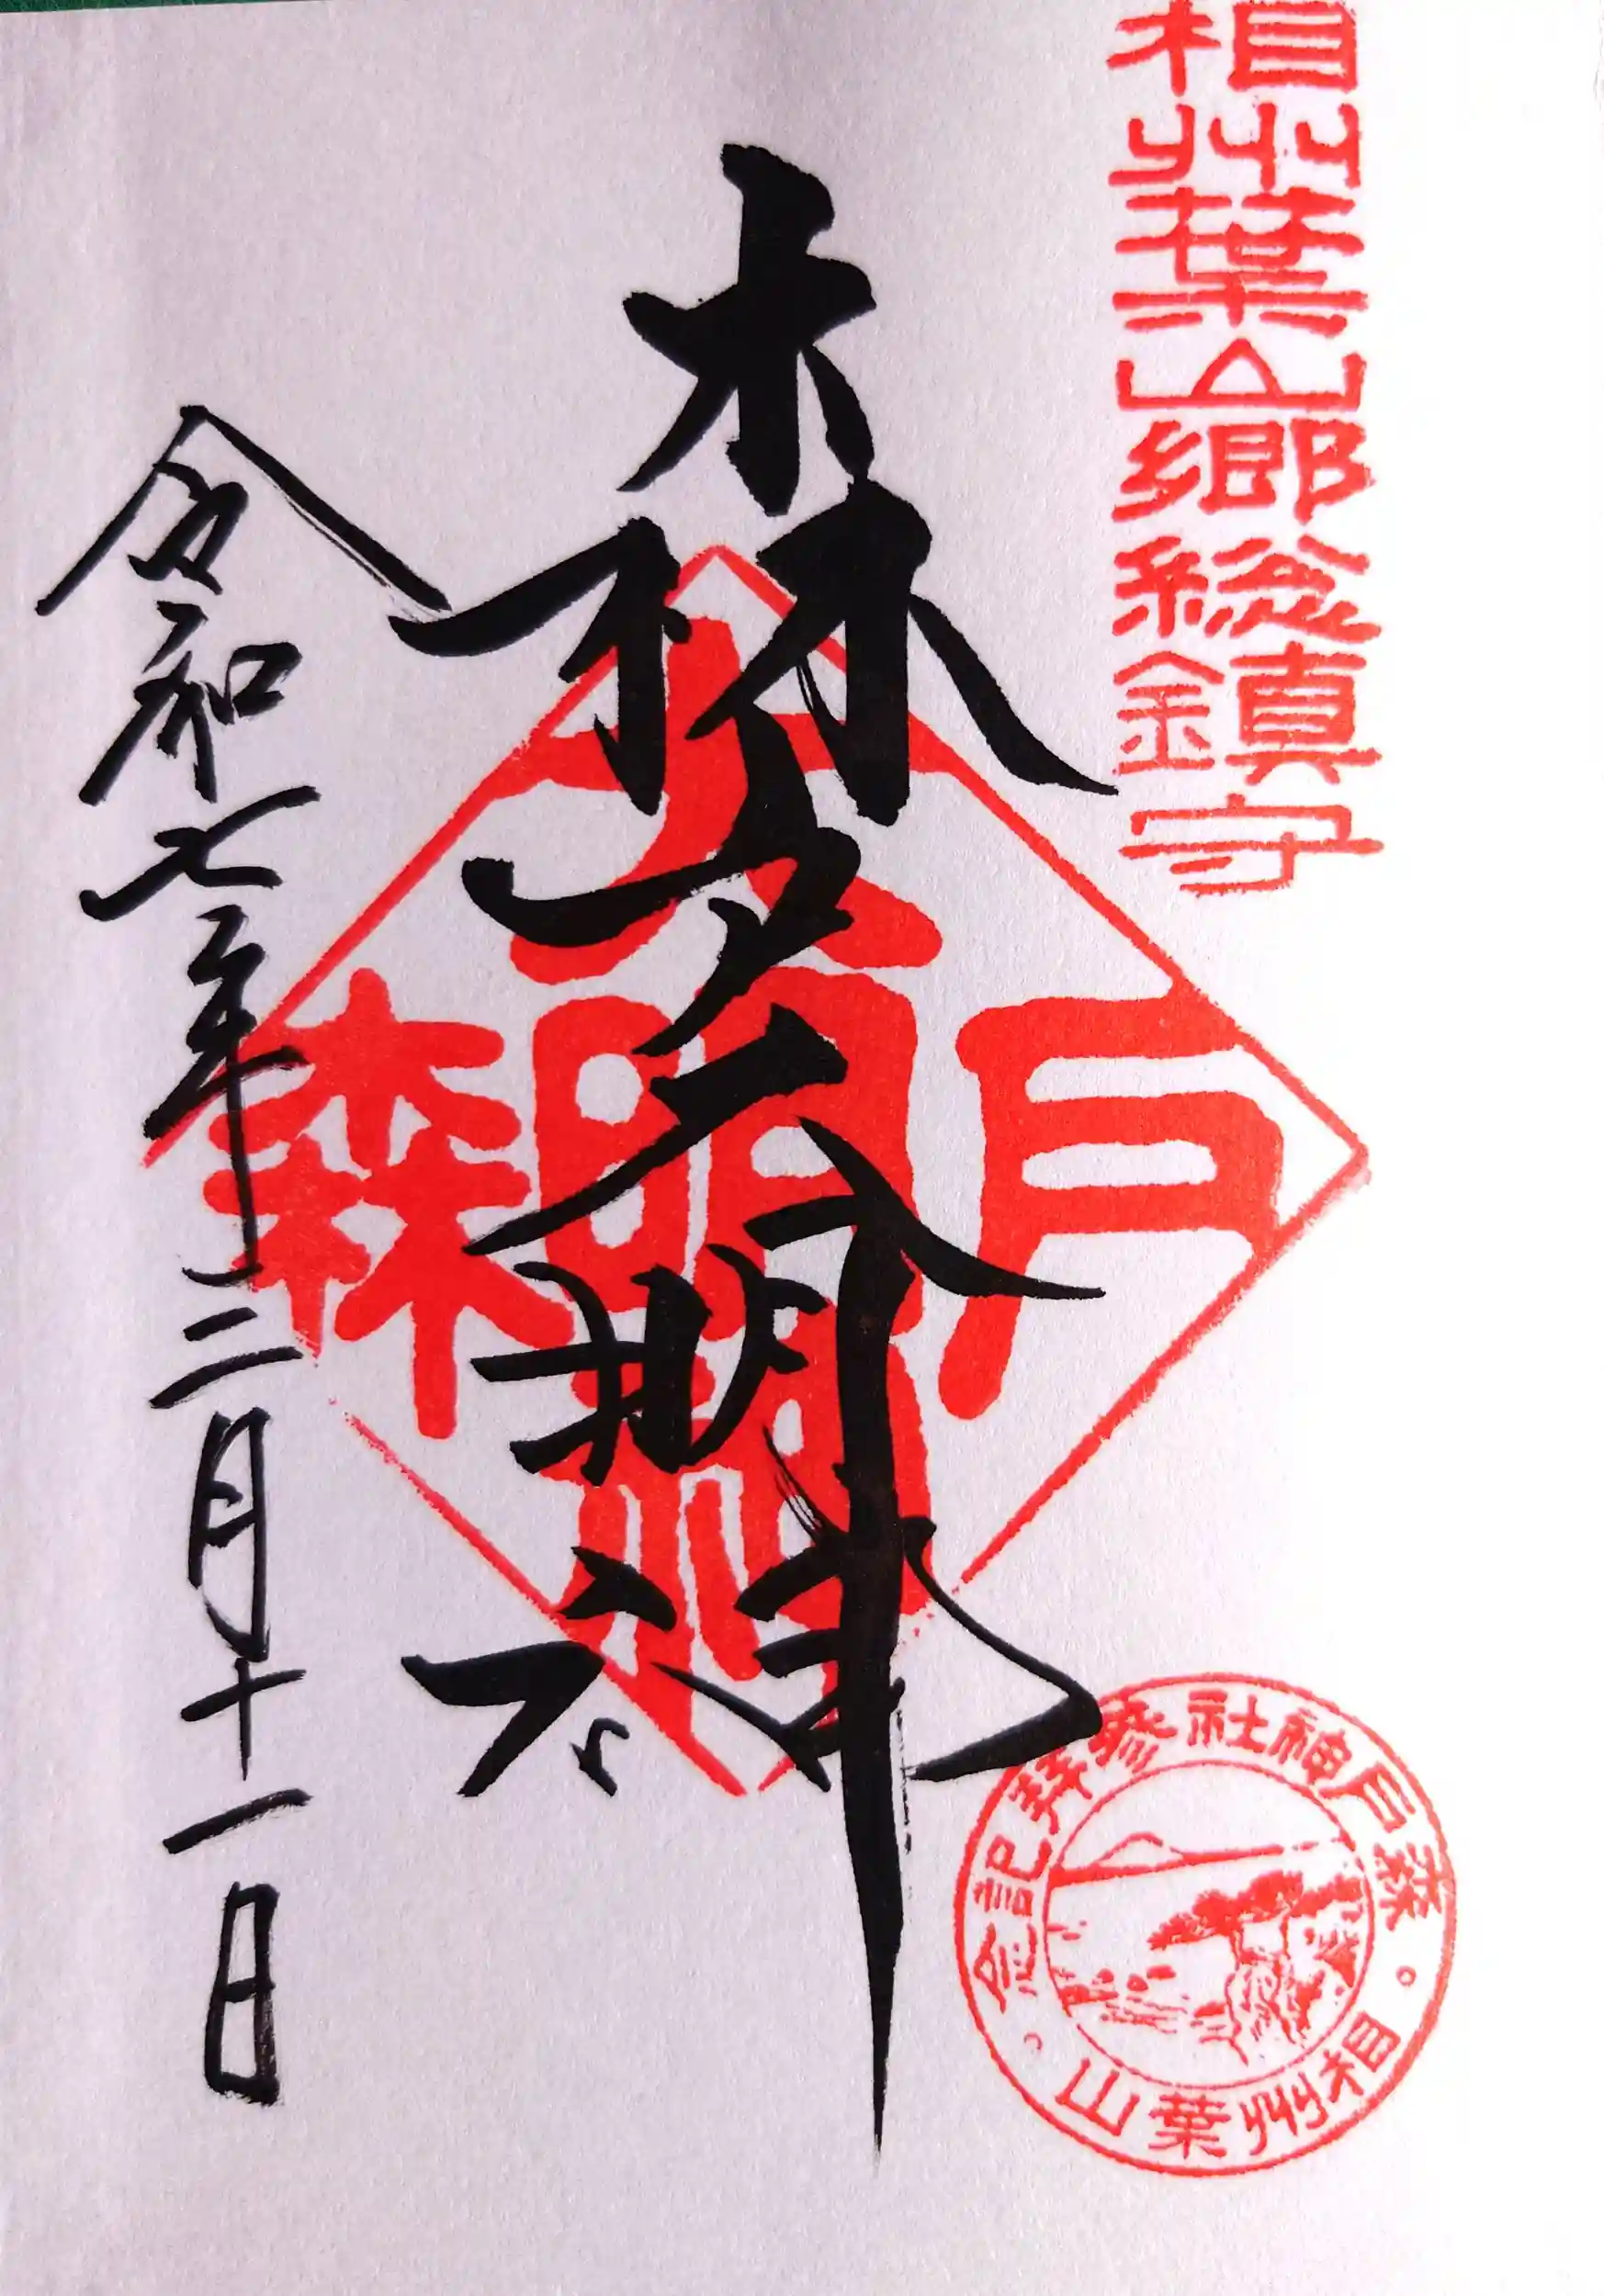 相州葉山郷総鎮守
森戸大明神
令和七年二月十一日
森戸大明神
森戸神社參拜記念
相州葉山